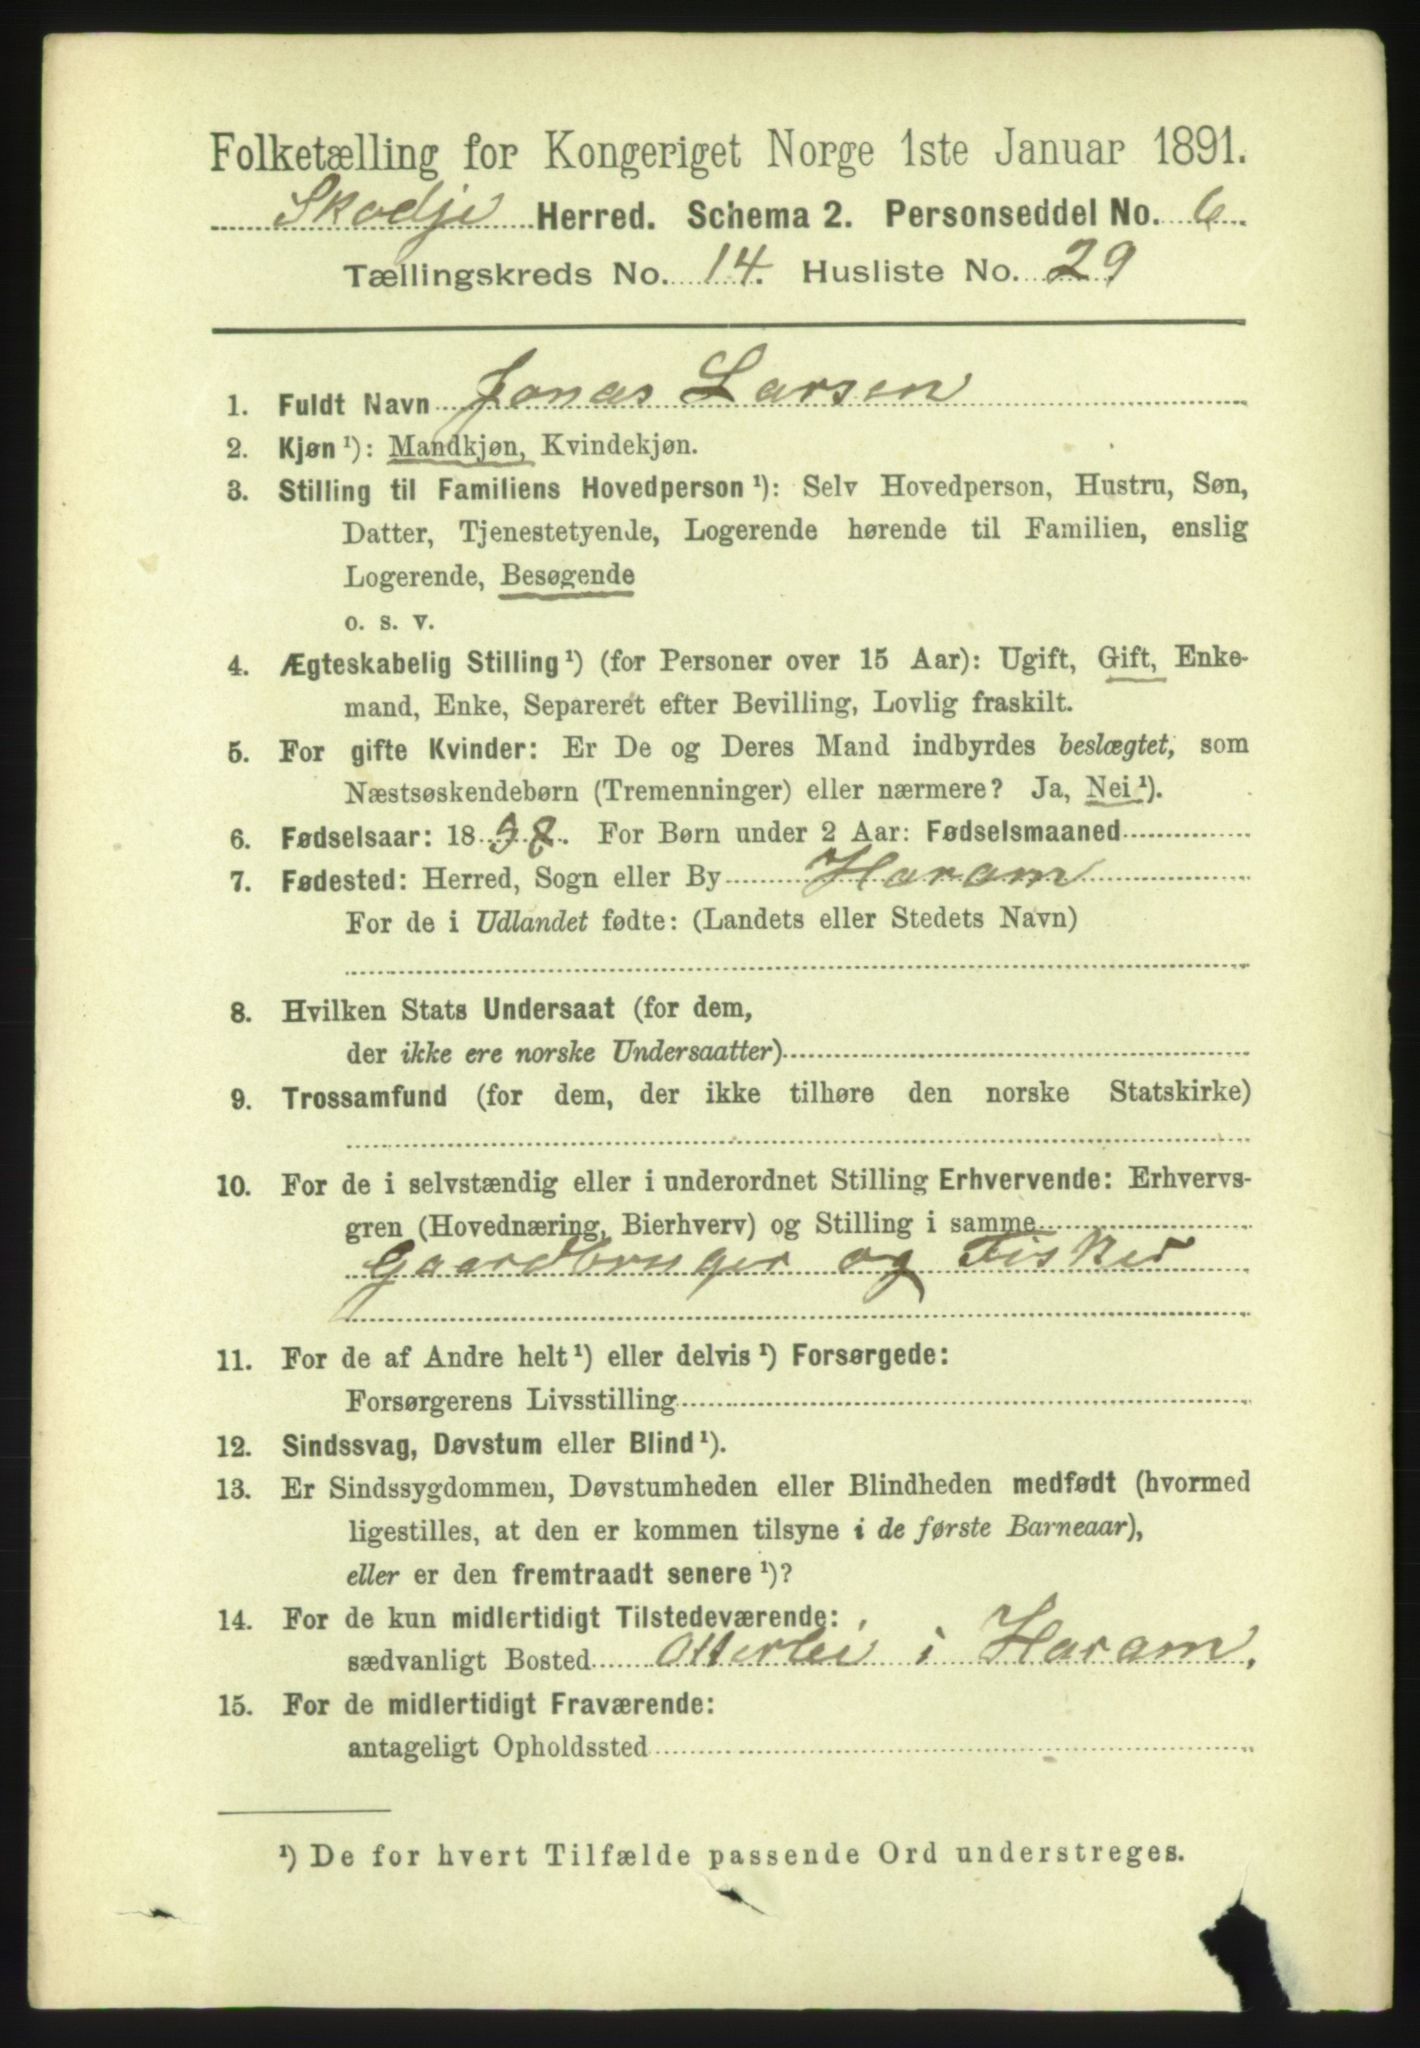 Folketælling for Kongeriget Norge 1ste Januar 1891.
Skodje Herred. Schema 2. Personseddel No. 6.
Tællingskreds No. 14. Husliste No. 29
1. Fuldt Navn Jonas Larsen
2. Kjøn ¹): Mandkjøn, Kvindekjøn.
3. Stilling til Familiens Hovedperson ¹): Selv Hovedperson, Hustru, Søn,
Datter, Tjenestetyende, Logerende hørende til Familien, enslig
Logerende, Besøgende
o. s. v.
4. Ægteskabelig Stilling ¹) (for Personer over 15 Aar): Ugift, Gift, Enke-
mand, Enke, Separeret efter Bevilling, Lovlig fraskilt.
5. For gifte Kvinder: Er De og Deres Mand indbyrdes beslægtet, som
Næstsøskendebørn (Tremenninger) eller nærmere? Ja, Nei ¹).
6. Fødselsaar: 18 For Børn under 2 Aar: Fødselsmaaned
7. Fødested: Herred, Sogn eller By Haram
For de i Udlandet fødte: (Landets eller Stedets Navn)
8. Hvilken Stats Undersaat (for dem,
der ikke ere norske Undersaatter)
9. Trossamfund (for dem, der ikke tilhøre den norske Statskirke)
10. For de i selvstændig eller i underordnet Stilling Erhvervende: Erhvervs-
gren (Hovednæring, Bierhverv) og Stilling i samme
Gaardbruger og Fisker
11. For de af Andre helt ¹) eller delvis ¹) Forsørgede:
Forsørgerens Livsstilling
12. Sindssvag, Døvstum eller Blind ¹).
13. Er Sindssygdommen, Døvstumheden eller Blindheden medfødt (hvormed
ligestilles, at den er kommen tilsyne i de første Barneaar),
eller er den fremtraadt senere ¹)?
14. For de kun midlertidigt Tilstedeværende:
sædvanligt Bosted Otterlei i Haram.
15. For de midlertidigt Fraværende:
antageligt Opholdssted
¹) De for hvert Tilfælde passende Ord understreges.